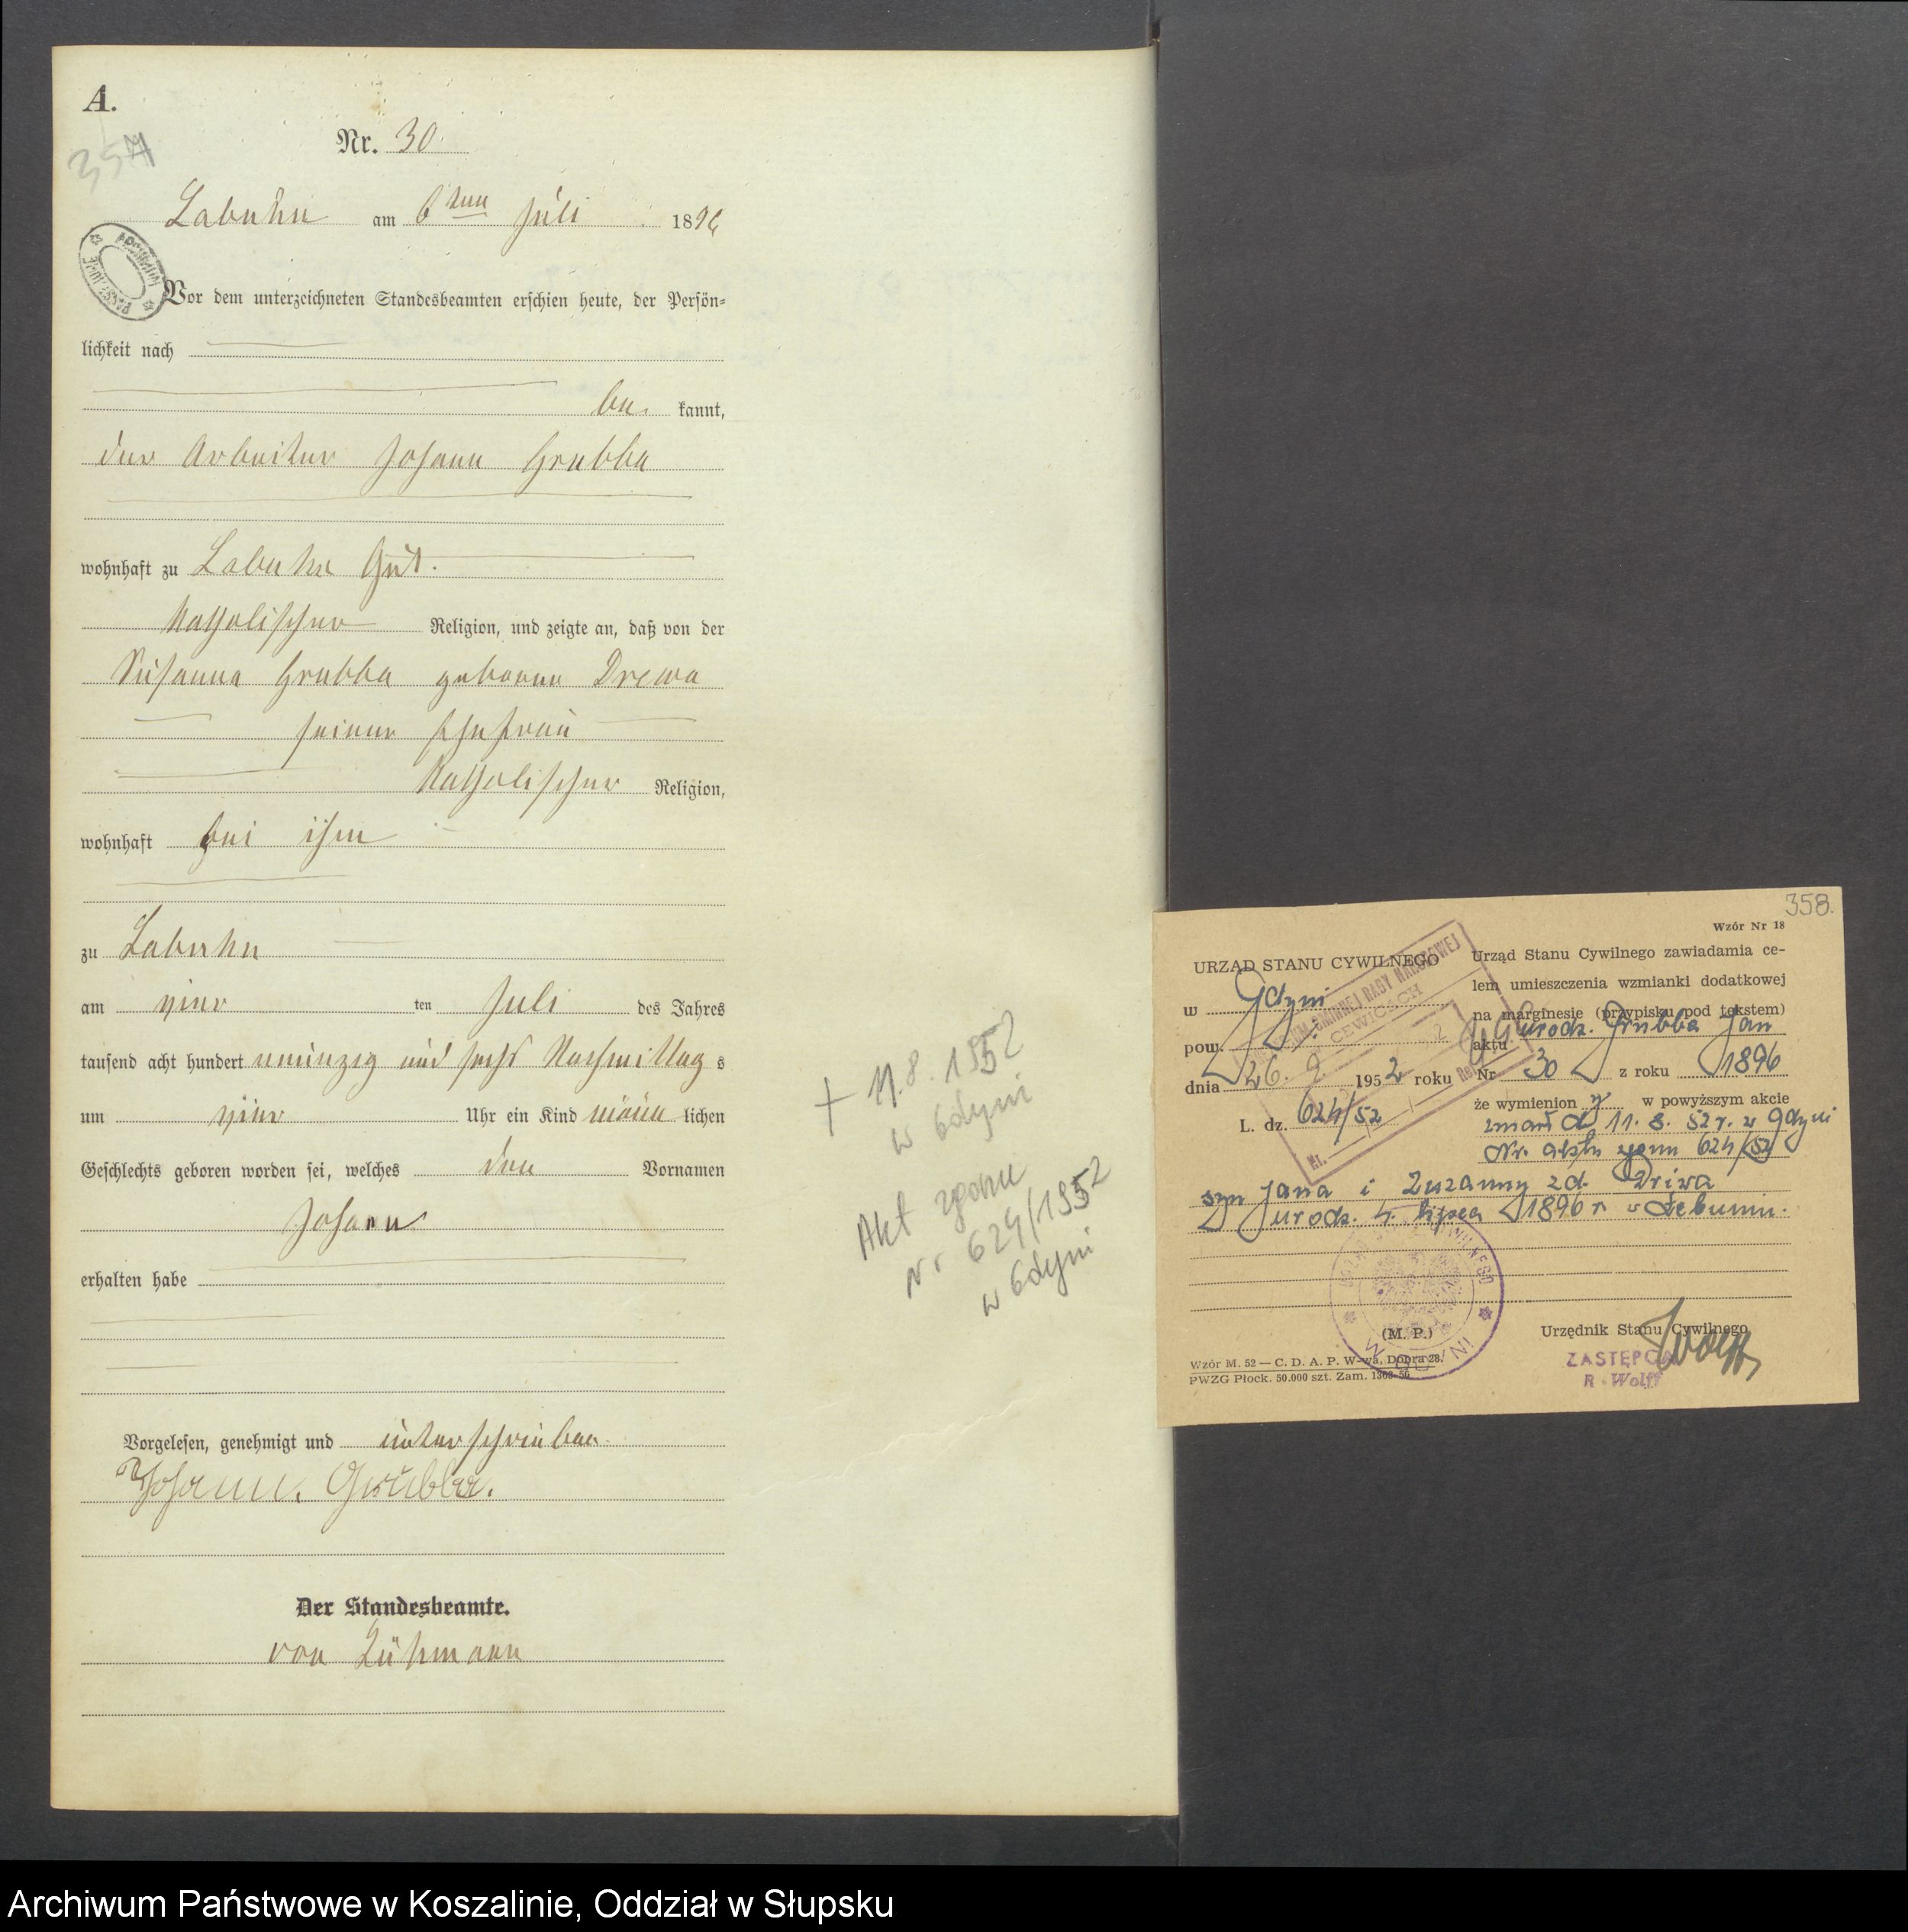 A.
357
Nr. 30.
Labuhn am 6ten Juli 1896
Vor dem unterzeichneten Standesbeamten erschien heute, der Persön=
lichkeit nach
be kannt,
der Arbeiter Johann Grubba
wohnhaft zu Labuhn Gut.
Katholischer Religion, und zeigte an, daß von der
Susanna Grubba geborne Drewa
seiner Ehefrau
Katholischer Religion,
wohnhaft bei ihm
zu Labuhn
am vier ten Juli des Jahres
tausend acht hundert neunzig und sechs Nachmittag s
um vier Uhr ein Kind männ lichen
Geschlechts geboren worden sei, welches den Vornamen
Johann
erhalten habe
Vorgelesen, genehmigt und unterschrieben
Johann. Grubba.
Der Standesbeamte.
von Lühmann
+ 11.8.1952
w Gdyni
Akt zgonu
Nr 624/1952
w Gdyni
358.
Wzór Nr 18
URZĄD STANU CYWILNEGO
w Gdyni
pow.
dnia 26. 9. 1952 roku
L. dz. 624/52
Urząd Stanu Cywilnego zawiadamia ce-
lem umieszczenia wzmianki dodatkowej
na marginesie (przypisku pod tekstem)
aktu urodz. Grubba Jan
Nr 30 z roku 1896
że wymienion y w powyższym akcie
zmarł d. 11. 8. 52 r. w Gdyni
Nr. aktu zgonu 624/52
syn Jana i Zuzanny zd. Driwa
urodz. 4. lipca 1896 r w Łebuniu.
GMINNEJ RADY NARODOWEJ
CEWICACH
Nr.
(M. P.)
Urzędnik Stanu Cywilnego
ZASTĘPCA
R. Wolff
Wzór M. 52 — C. D. A. P. W-wa, Dobra 28.
PWZG Płock. 50.000 szt. Zam. 1303-50
Archiwum Państwowe w Koszalinie, Oddział w Słupsku